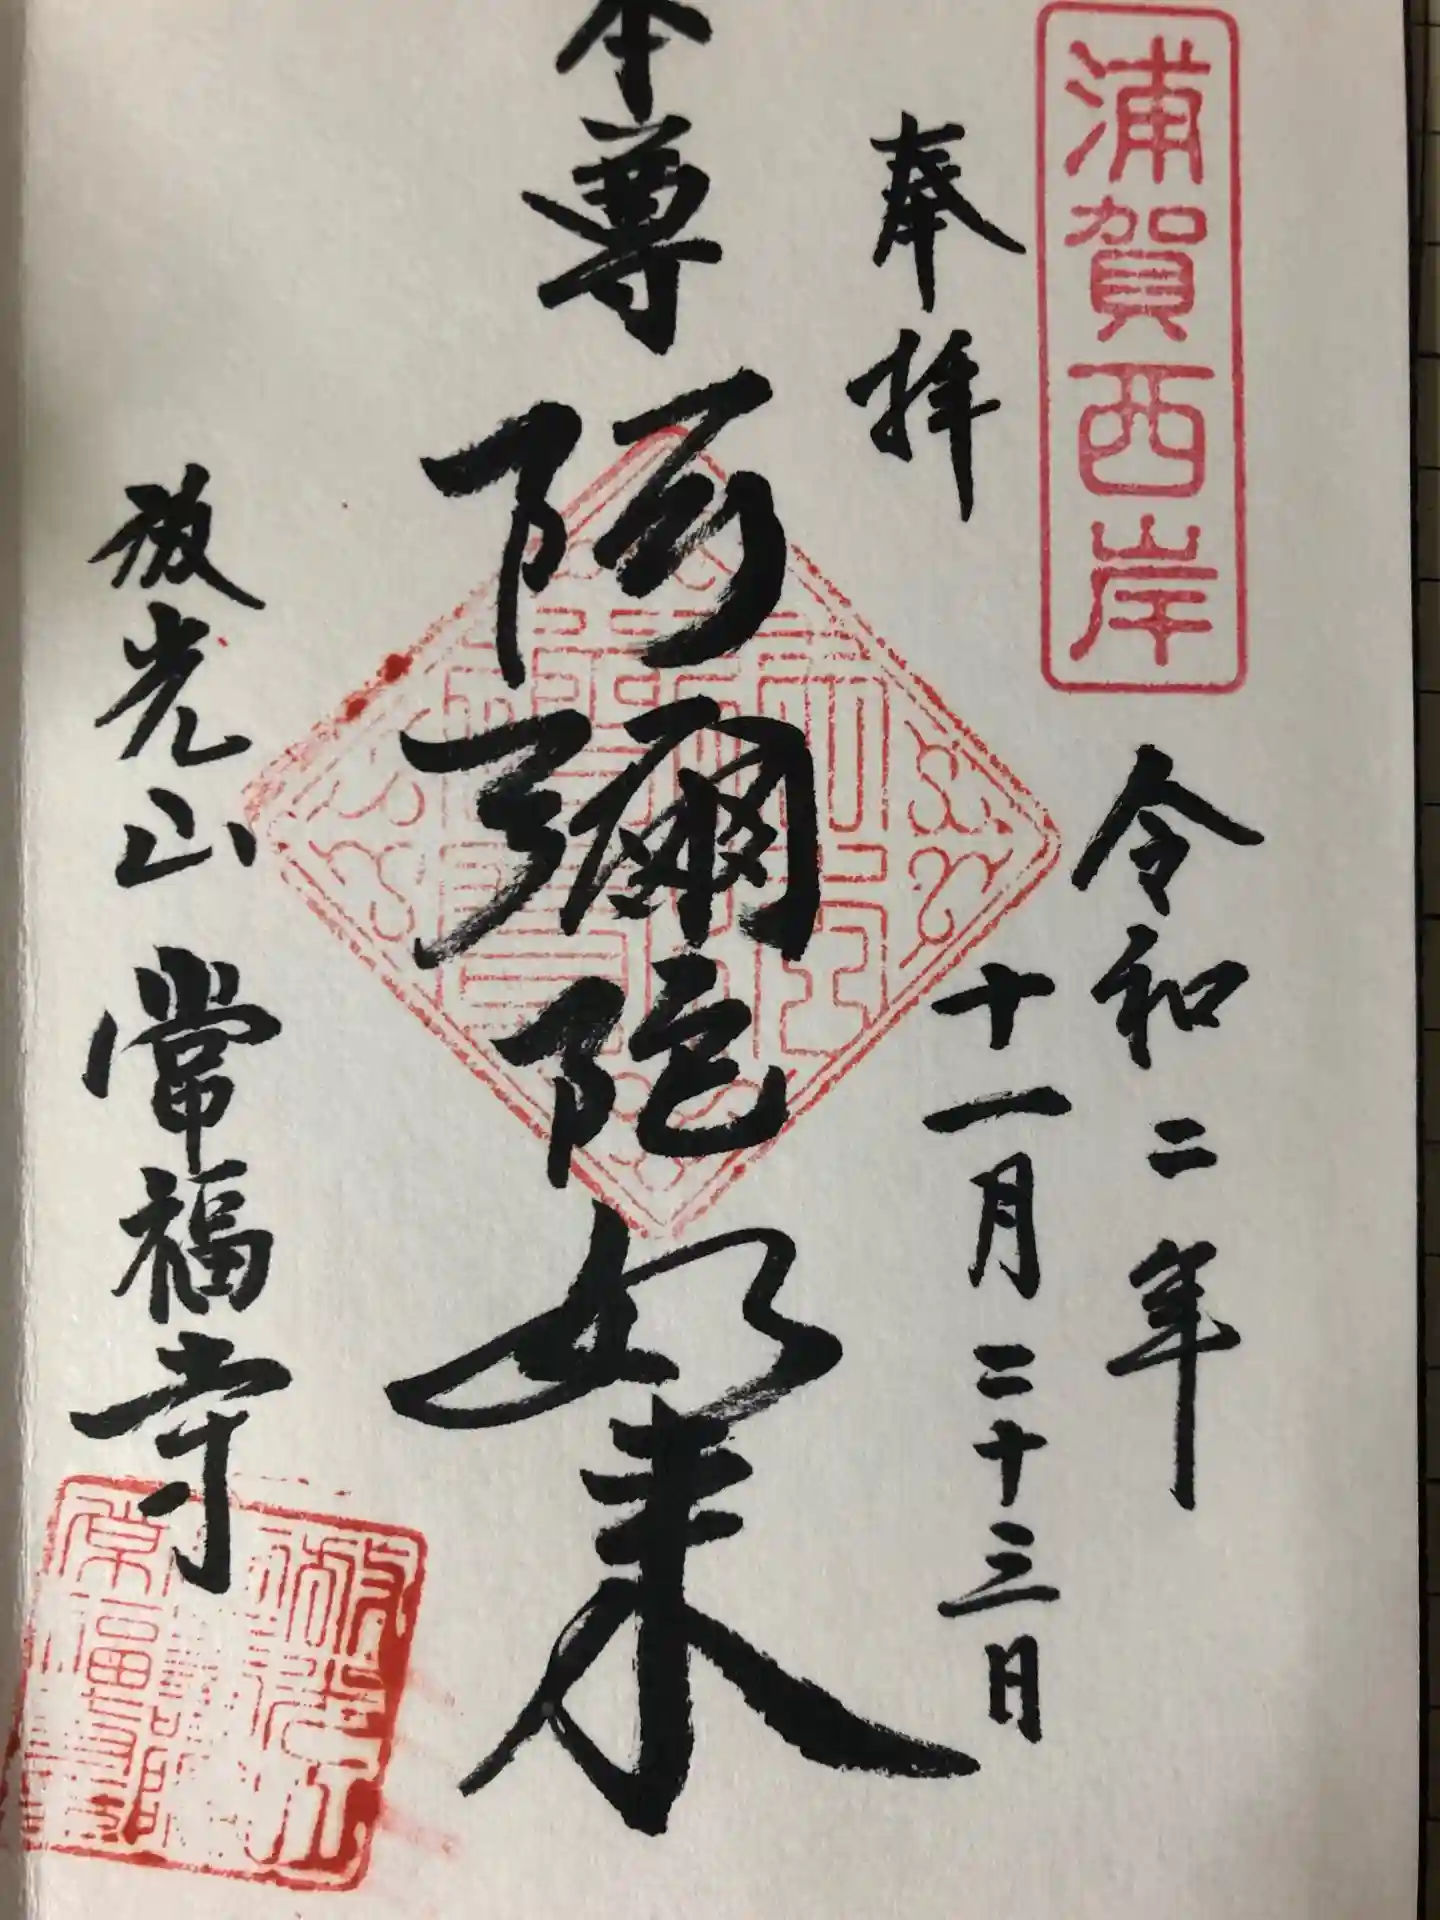 浦賀西岸
奉拝
令和二年
十一月二十三日
本尊
阿彌陀如来
放光山 常福寺